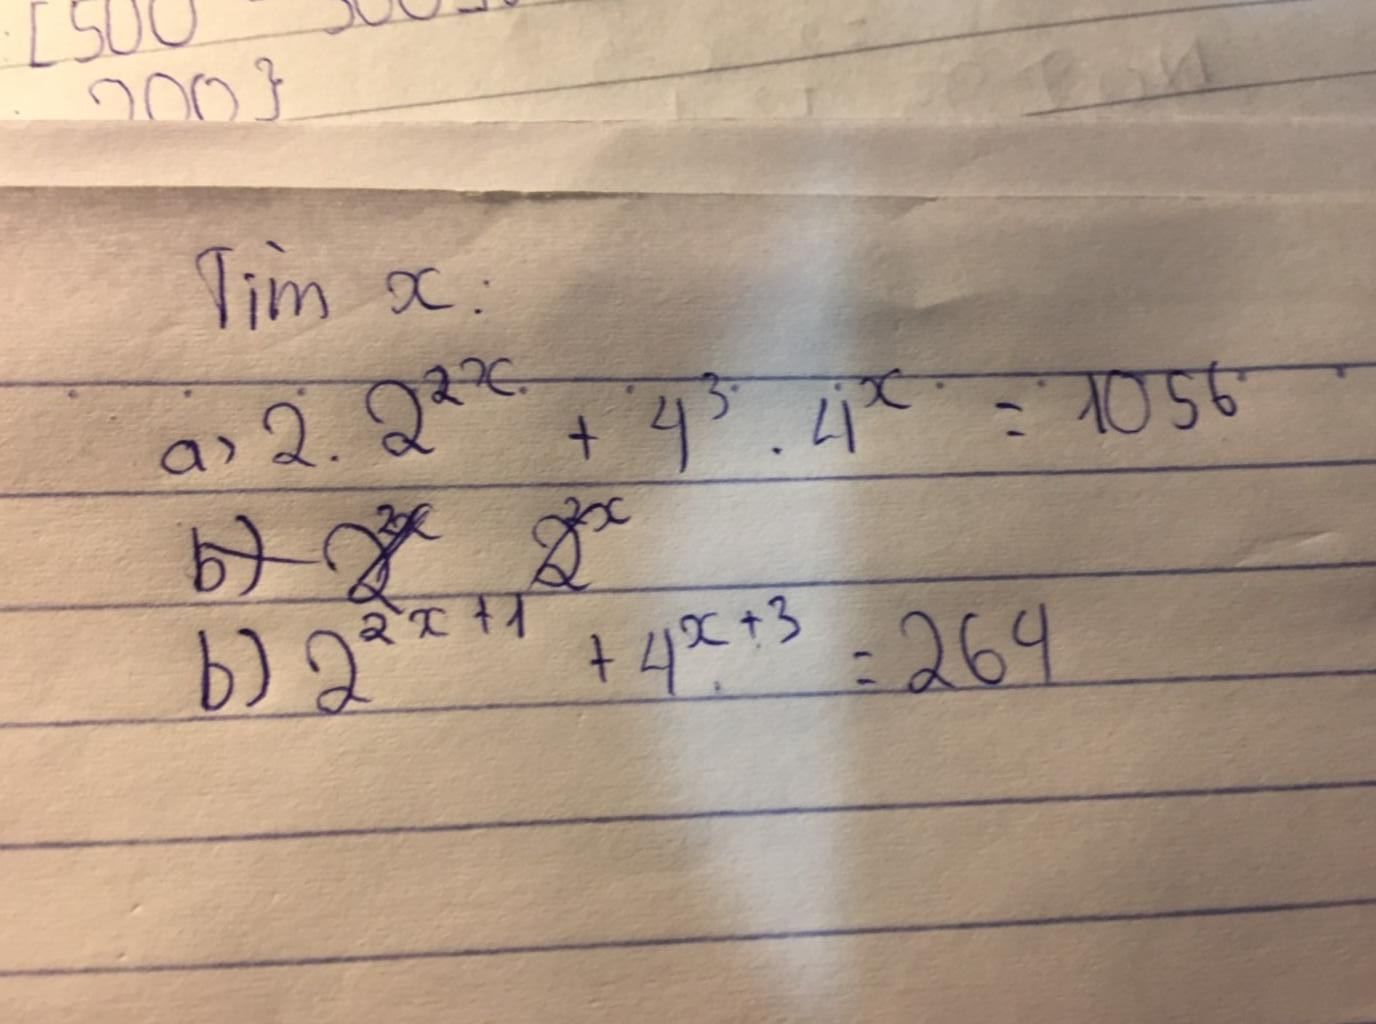 [500
200}
Tìm x:
a) 2. 2^2x + 4^3 . 4^x = 1056
b) 2^2x 2^2x
b) 2^2x+1 + 4^x+3 = 264